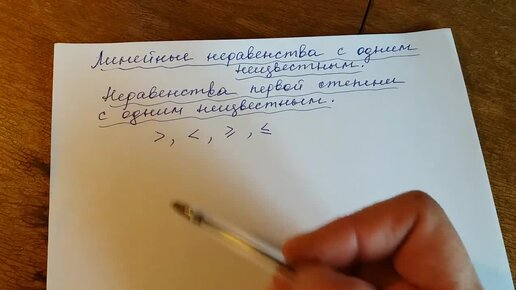 Линейные неравенства с одним
неизвестным.
Неравенства первой степени
с одним неизвестным.
>, <, ⩾, ≤